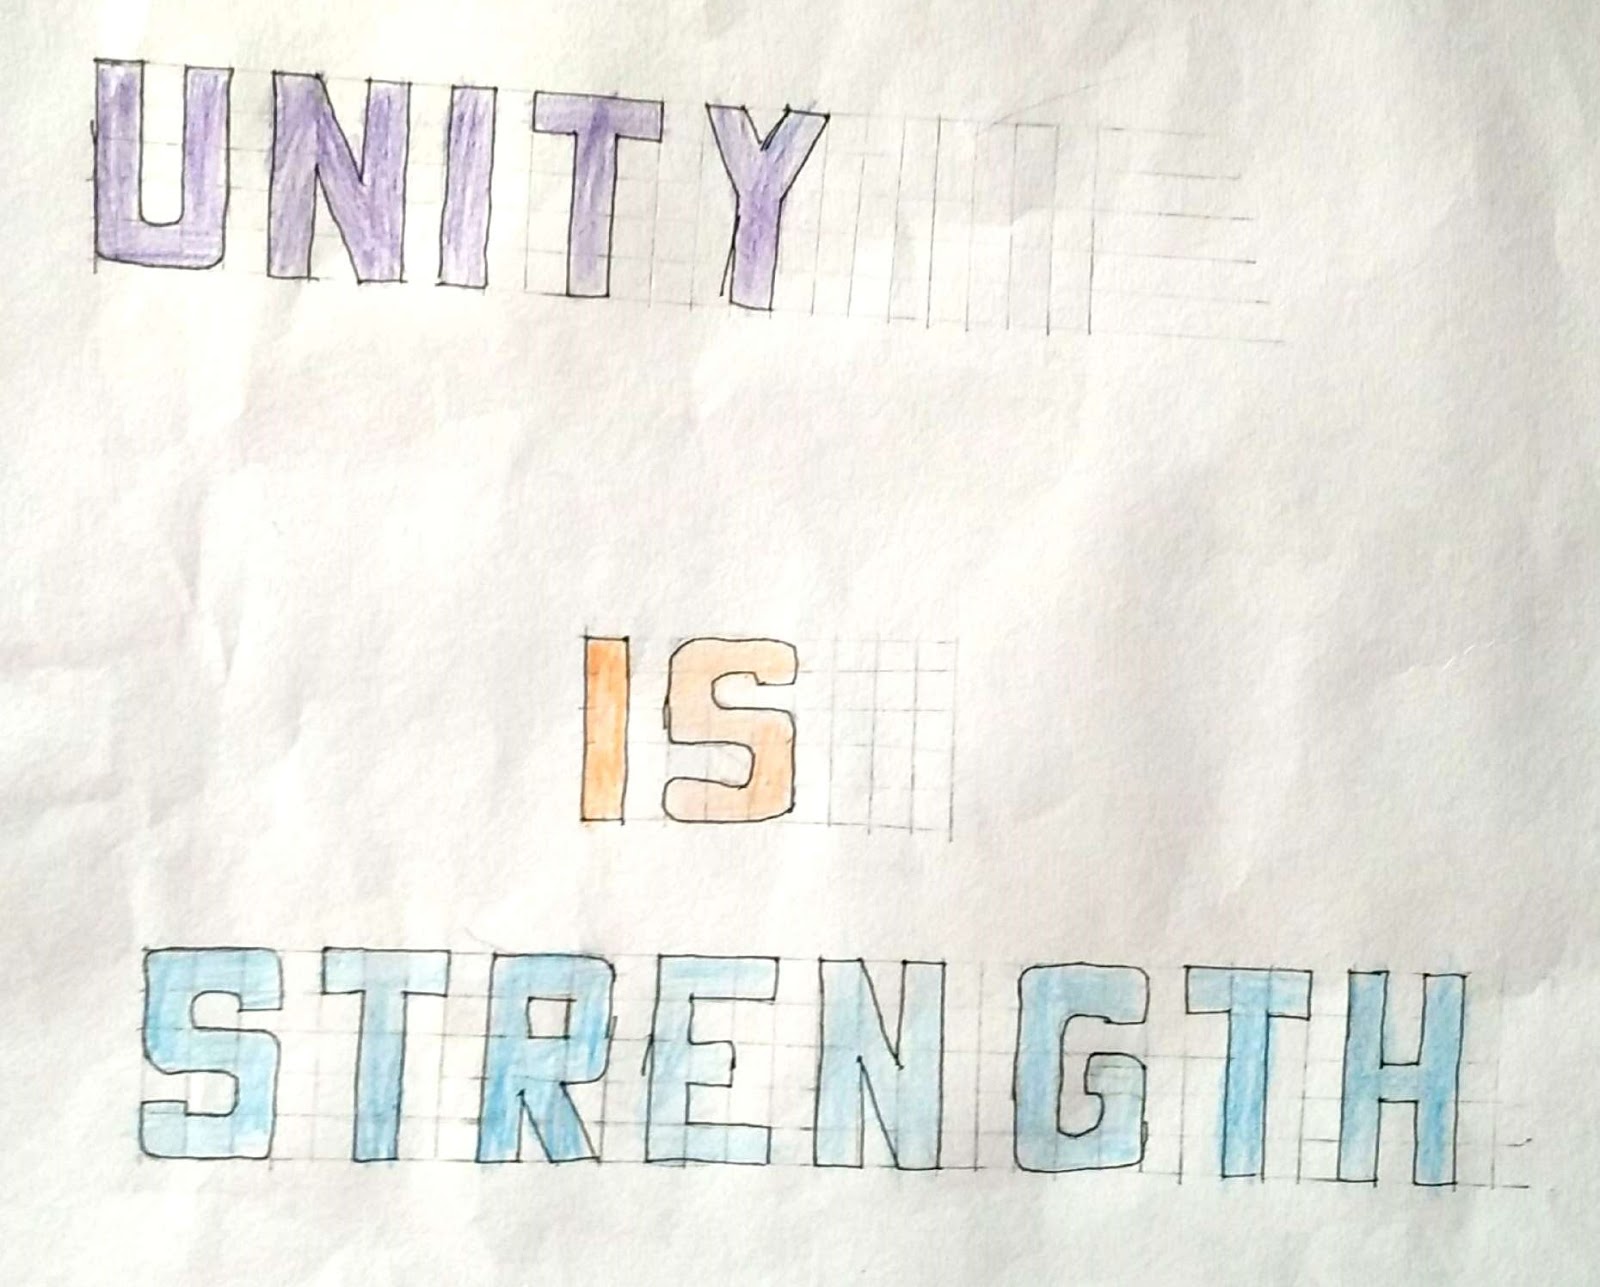 UNITY
IS
STRENGTH